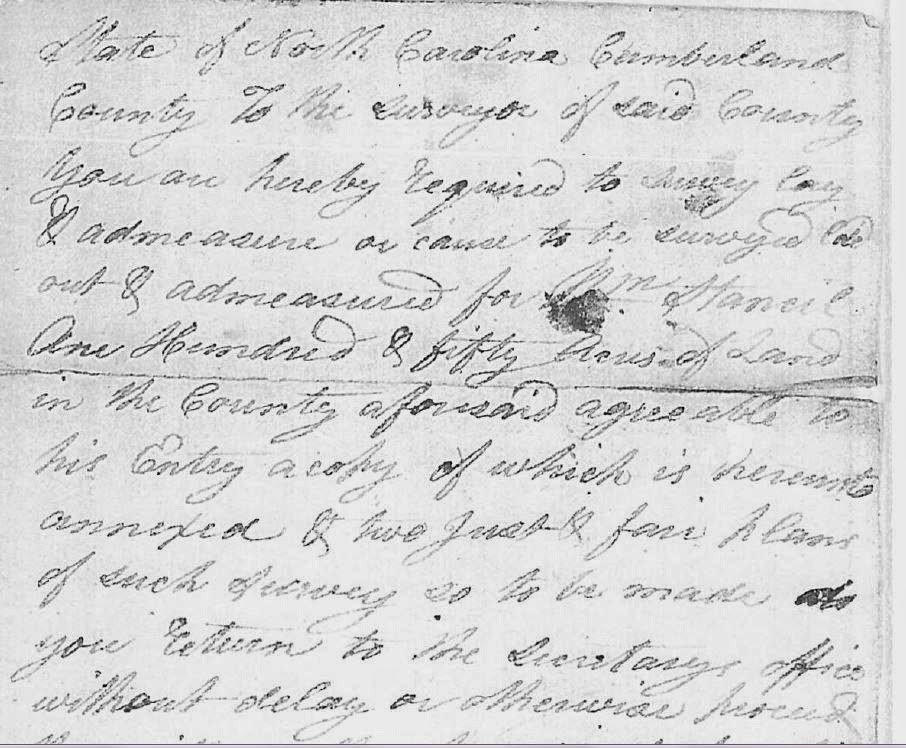 State of North Carolina Cumberland
County To the surveyor of said County
You are hereby required to survey lay
& admeasure or cause to be surveyed
out & admeasured for Wm Stancil
One Hundred & fifty Acres of Land
in the County aforesaid agreeable to
his Entry a copy of which is hereunto
annexed & two Just & fair plans
of such Survey so to be made do
you return to the Secretarys office
without delay or otherwise proceed